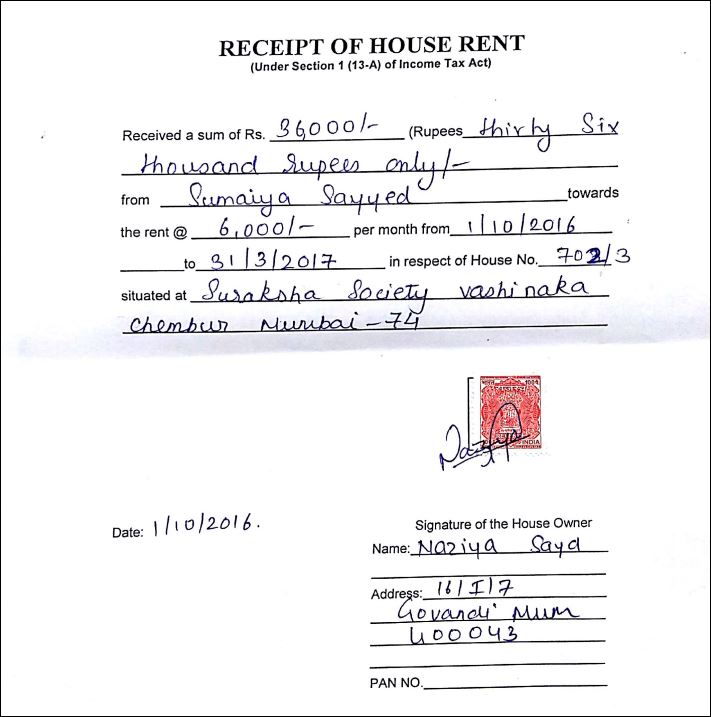 RECEIPT OF HOUSE RENT
(Under Section 1 (13-A) of Income Tax Act)
Received a sum of Rs. 36,000/- (Rupees thirty Six
thousand rupees only/-
from Sumaiya Sayyed towards
the rent @ 6,000/- per month from 1/10/2016
to 31/3/2017 in respect of House No. 702/3
situated at Suraksha Society vashinaka
Chembur Mumbai-74
भारत
INDIA
Date: 1/10/2016.
Signature of the House Owner
Name: Naziya Sayd
Address: 16/I/7
Govandi Mum
400043
PAN NO.